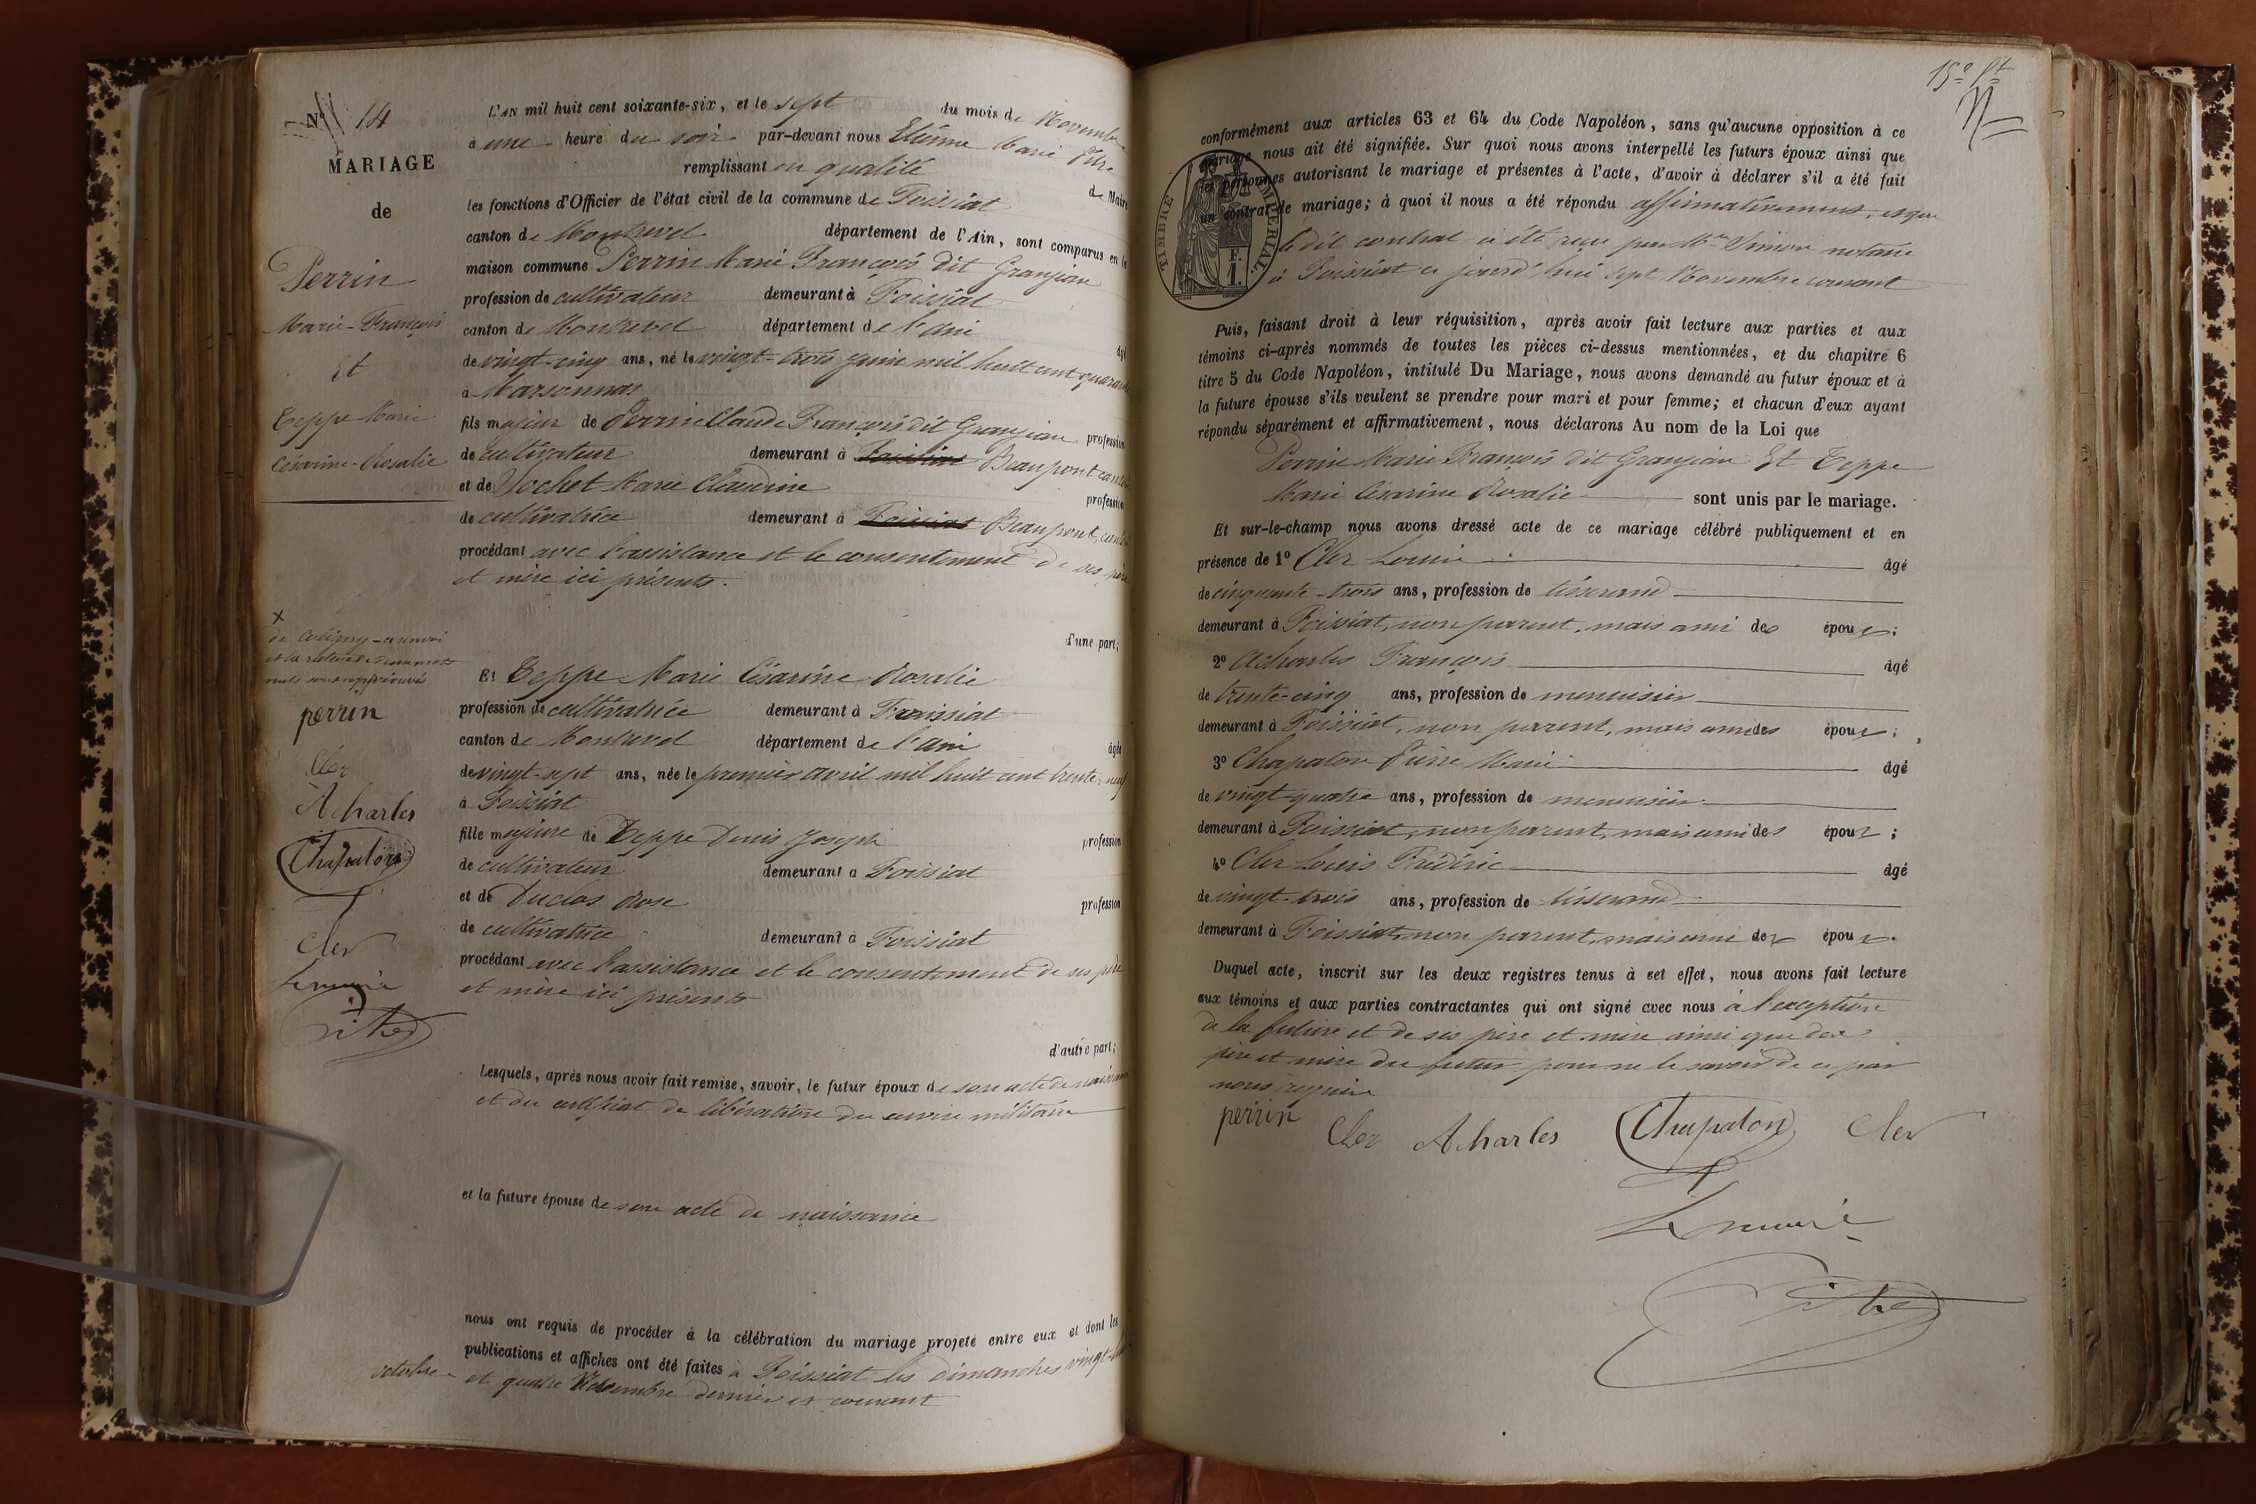 N° 14
MARIAGE
de
Perrin
Marie-François
Et
Teppe Marie
Césarine-Rosalie
X
de Coligny
et la rature de deux mots
nuls sont approuvés
perrin
Cler
Acharles
Chapalon
Cler
Le maire
L'AN mil huit cent soixante-six, et le sept du mois de Novembre
à une heure du soir par-devant nous Etienne Marie
remplissant en qualité de Maire
les fonctions d'Officier de l'état civil de la commune de Foissiat
canton de Montrevel département de l'Ain, sont comparus en la
maison commune Perrin Marie François dit Granjean
profession de cultivateur demeurant à Foissiat
canton de Montrevel département de l'ain âgé
de vingt-cinq ans, né le vingt-trois juin mil huit cent quarante
à Marsonnas
fils majeur de Perrin Claude François dit Granjean profession
de cultivateur demeurant à Foissiat Beaupont canton
et de Vochet Marie Claudine profession
de cultivatrice demeurant à Foissiat Beaupont, canton
procédant avec l'assistance et le consentement de ses père
et mère ici présents.
d'une part;
Et Teppe Marie Césarine Rosalie
profession de cultivatrice demeurant à Froissiat
canton de Montrevel département de l'ain âgée
de vingt-sept ans, née le premier avril mil huit cent trente-neuf
à Foissiat
fille majeure de Teppe Denis Joseph profession
de cultivateur demeurant à Foissiat
et de Duclos Rose profession
de cultivatrice demeurant à Foissiat
procédant avec l'assistance et le consentement de ses père
et mère ici présents
d'autre part;
Lesquels, après nous avoir fait remise, savoir, le futur époux de son acte de naissance
et du certificat de libération du service militaire
et la future épouse de son acte de naissance
nous ont requis de procéder à la célébration du mariage projeté entre eux et dont les
publications et affiches ont été faites à Foissiat les dimanches vingt-huit
octobre et quatre Novembre dernier et courant
15e ft
conformément aux articles 63 et 64 du Code Napoléon, sans qu'aucune opposition à ce
mariage nous ait été signifiée. Sur quoi nous avons interpellé les futurs époux ainsi que
les personnes autorisant le mariage et présentes à l'acte, d'avoir à déclarer s'il a été fait
un contrat de mariage; à quoi il nous a été répondu affirmativement, et que
le dit contrat a été reçu par Me Simon notaire
à Foissiat ce jourd'hui sept Novembre courant
TIMBRE IMPÉRIAL
F.
1.
Puis, faisant droit à leur réquisition, après avoir fait lecture aux parties et aux
témoins ci-après nommés de toutes les pièces ci-dessus mentionnées, et du chapitre 6
titre 5 du Code Napoléon, intitulé Du Mariage, nous avons demandé au futur époux et à
la future épouse s'ils veulent se prendre pour mari et pour femme; et chacun d'eux ayant
répondu séparément et affirmativement, nous déclarons Au nom de la Loi que
Perrin Marie François dit Granjean Et Teppe
Marie Césarine Rosalie sont unis par le mariage.
Et sur-le-champ nous avons dressé acte de ce mariage célébré publiquement et en
présence de 1° Cler Louis âgé
de cinquante-trois ans, profession de tisserand
demeurant à Foissiat, non parent, mais ami des époux;
2° Acharles François âgé
de trente-cinq ans, profession de menuisier
demeurant à Foissiat, non parent, mais ami des époux;
3° Chapalon Pierre Marie âgé
de vingt-quatre ans, profession de menuisier
demeurant à Foissiat, non parent, mais ami des époux;
4° Cler Louis Frédéric âgé
de vingt-trois ans, profession de tisserand
demeurant à Foissiat, non parent, mais ami des époux.
Duquel acte, inscrit sur les deux registres tenus à cet effet, nous avons fait lecture
aux témoins et aux parties contractantes qui ont signé avec nous à l'exception
de la future et de ses père et mère ainsi que des
père et mère du futur pour ne le savoir de ce par
nous requis
perrin
Cler Acharles Chapalon Cler
Le maire